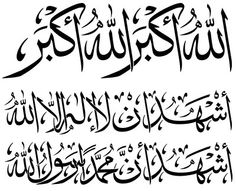 اللهُ أَكْبَر اللهُ أَكْبَر
أَشْهَدُ أَنْ لَا إِلٰهَ إِلَّا اللهُ
أَشْهَدُ أَنَّ مُحَمَّدًا رَسُولُ اللهِ